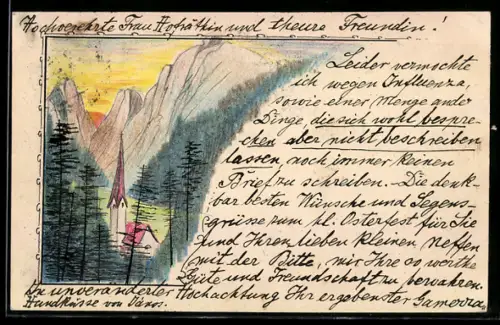 Hochverehrte Frau Hofräthin und theure Freundin!
Leider vermochte
ich wegen Influenza,
sowie einer Menge andrer
Dinge, die sich wohl bespre-
chen aber nicht beschreiben
lassen, noch immer keinen
Brief zu schreiben. - Die denk-
bar besten Wünsche und Segens-
grüsse zum hl. Osterfest für Sie
und Ihren lieben kleinen Neffen
mit der Bitte, mir Ihre so werthe
Güte und Freundschaft zu bewahren.
In unveränderter Hochachtung Ihr ergebenster
Handküsse von János.